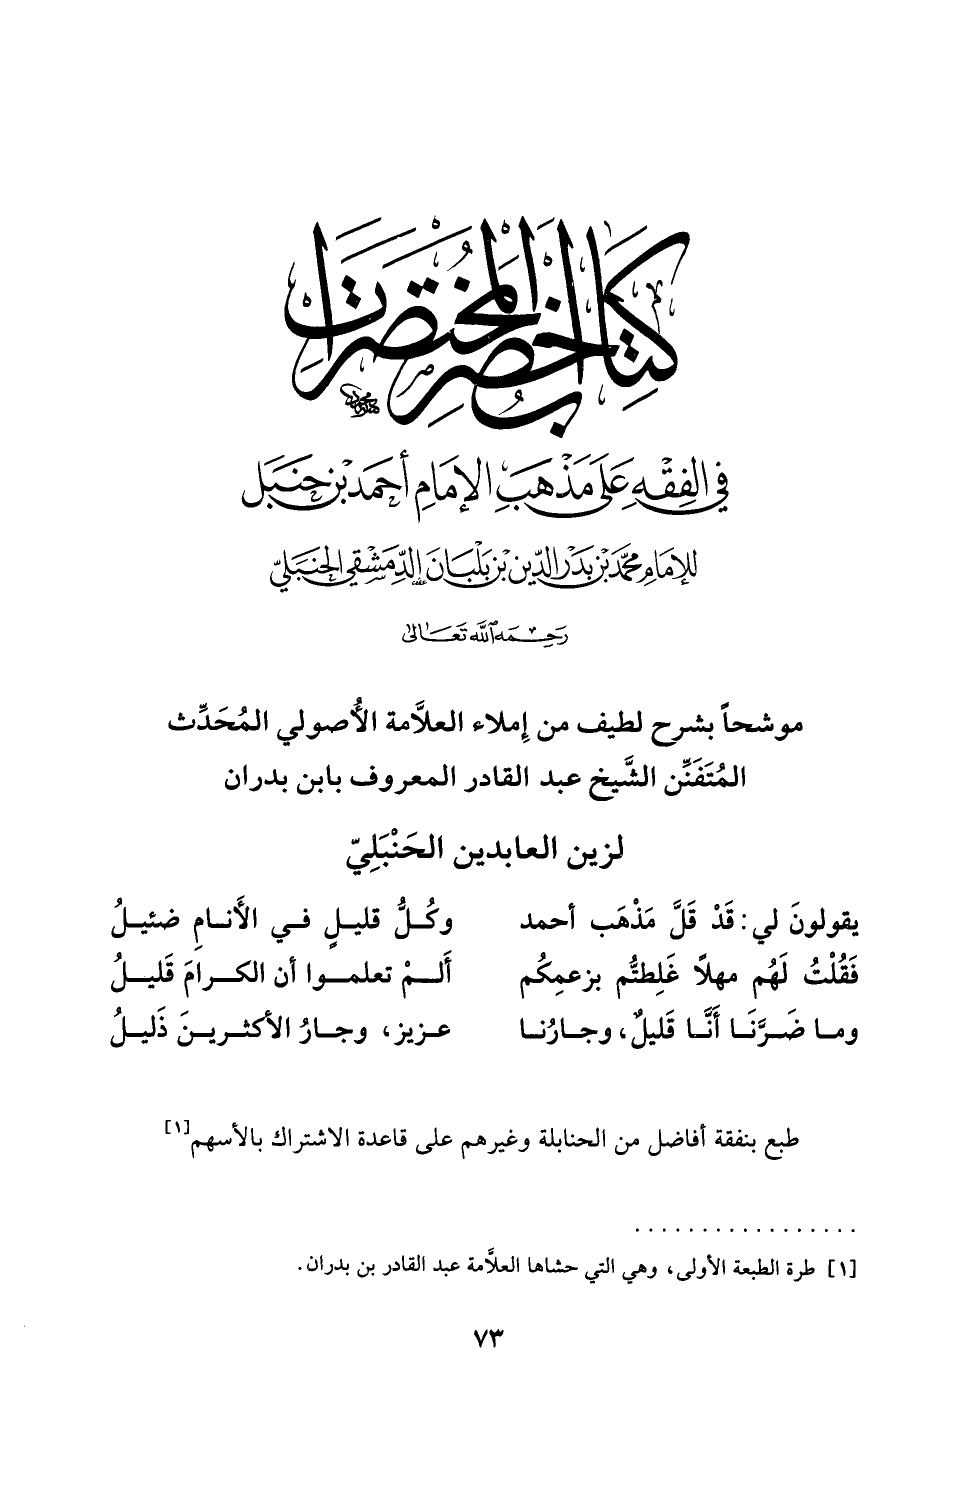 كتاب أخصر المختصرات
في الفِقْهِ عَلَى مَذْهَبِ الإمَامِ أحمَد بْن حَنبَل
للإمَامِ محمَّد بْن بَدْر الدِّين بْن بَلْبَان الدِّمَشْقي الحَنبَليّ
رَحِمَهُ اللَّه تَعَالىٰ
موشحاً بشرح لطيف من إملاء العلاَّمة الأُصولي المُحَدِّث
المُتَفَنِّن الشَّيخ عبد القادر المعروف بابن بدران
لزين العابدين الحَنْبَلِيّ
يقولونَ لي: قَدْ قَلَّ مَذْهَب أحمد وكُلُّ قليلٍ في الأَنامِ ضئيلُ
فَقُلْتُ لَهُم مهلاً غَلِطتُّم بزعمِكُم أَلمْ تعلموا أن الكرامَ قَليلُ
وما ضَرَّنَا أَنَّا قَليلٌ، وجارُنا عزيز، وجارُ الأكثرينَ ذَليلُ
طبع بنفقة أفاضل من الحنابلة وغيرهم على قاعدة الاشتراك بالأسهم[١]
. . . . . . . . . . . . . . . . .
[١] طرة الطبعة الأولى، وهي التي حشاها العلاَّمة عبد القادر بن بدران.
٧٣